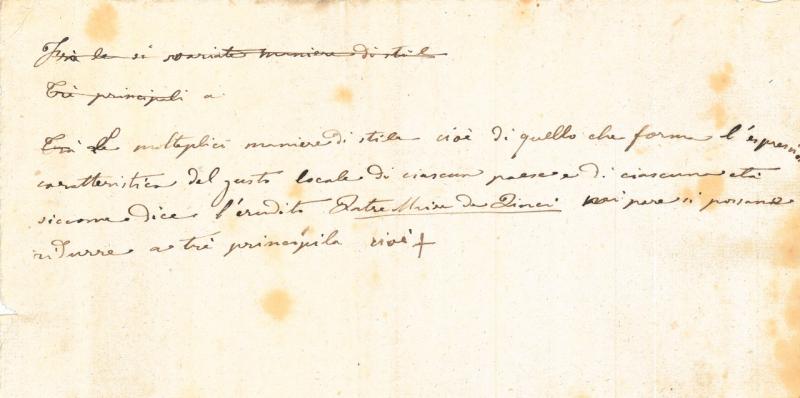 Fra le si variate maniere di stile
Trè principali a
Frà Le molteplici maniere di stile cioè di quello che forma l'espressio
caratteristica del gusto locale di ciascun paese e di ciascuna età
siccome dice l'erudito Quatre Mere de Quinci pare si possano
ridurre a trè principila cioè